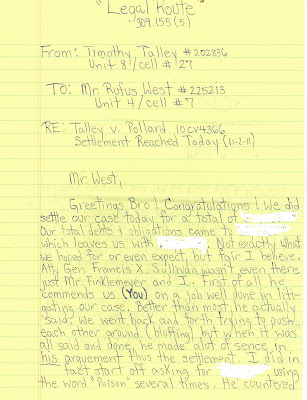 "Legal Route"
309.155 (5)
From: Timothy Talley #202836
Unit 8/cell # 27
TO: Mr. Rufus West #225213
Unit 4/cell #7
RE: Talley v. Pollard 10CV4366
Settlement Reached Today (11-2-11)
Mr. West,
Greetings Bro! Congratulations! We did
settle our case today for a total of
Our total debts & obligations came to
which leaves us with . Not exactly what
we hoped for or even expect, but fair I believe.
Atty. Gen. Francis X. Sullivan wasn't even there
just Mr. Finklemeyer and I. First of all he
commends us (You) on a job well done in liti-
gating our case. Better than most he actually
said. We went back and forth trying to push
each other around (bluffing) but when it was
all said and done, he made alot of sence in
his arguement thus the settlement. I did in
fact start off asking for using
the word "Poison" several times. He countered